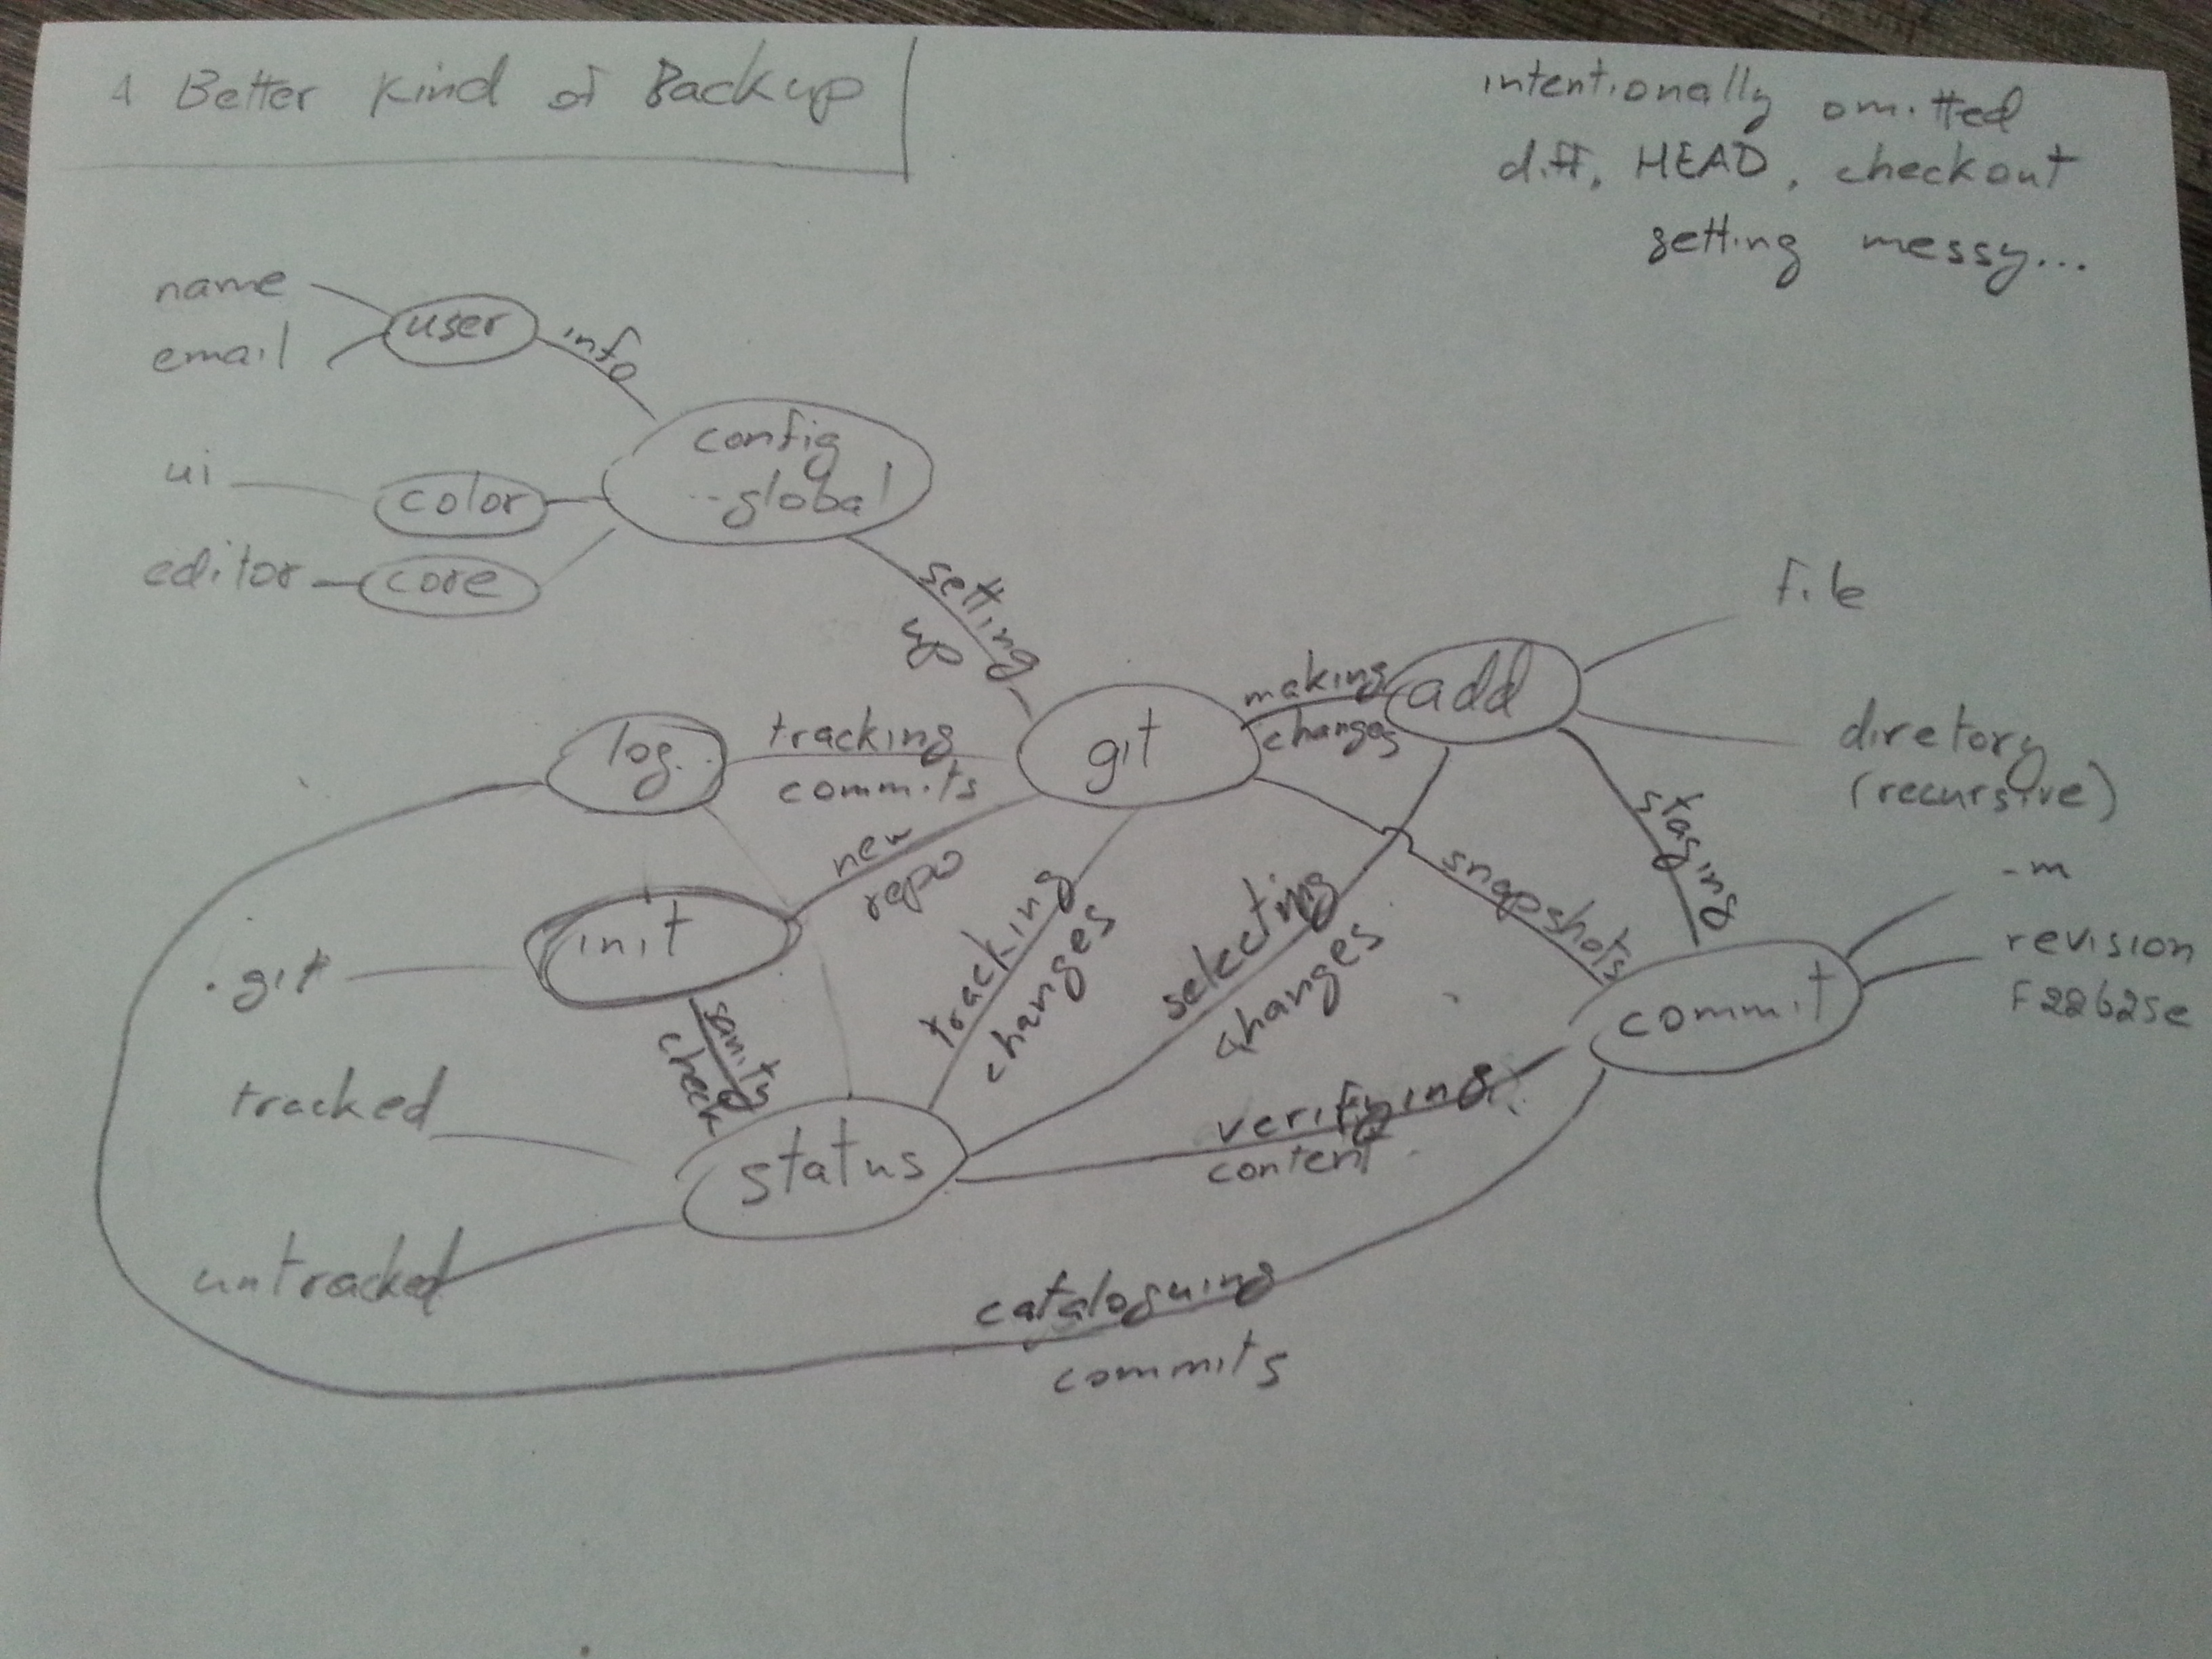 A Better Kind of Backup
intentionally omitted
diff, HEAD, checkout
getting messy...
name
email
user
info
config
--global
ui
color
editor
core
setting
up
file
making
changes
add
diretory
(recursive)
log
tracking
commits
git
staging
new
repo
snapshots
-m
revision
f22b25e
init
.git
tracking
changes
selecting
changes
commit
sanity
check
tracked
verifying
content
status
untracked
cataloguing
commits